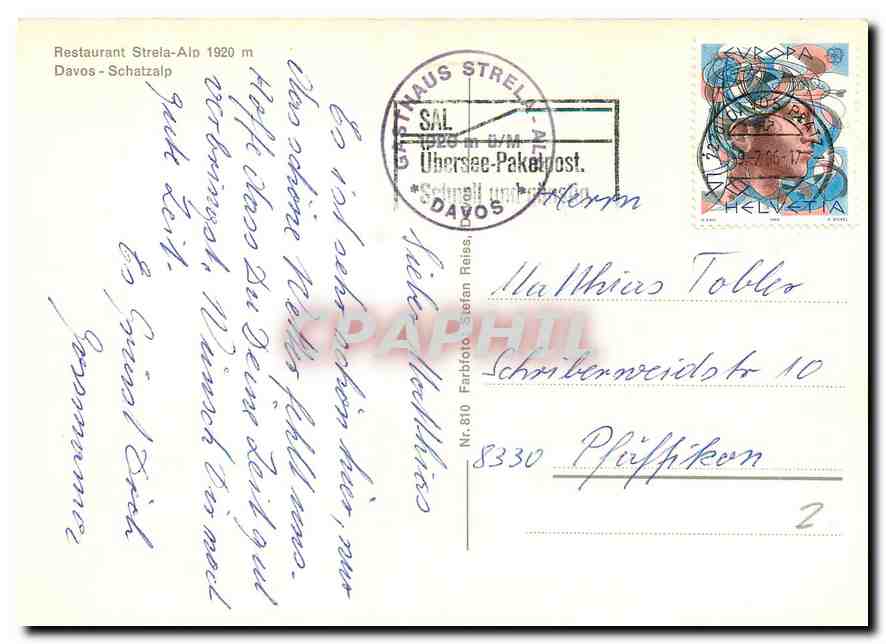 Restaurant Strela-Alp 1920 m
Davos - Schatzalp
GASTHAUS STRELA-ALP
1920 m ü/M
* DAVOS *
SAL
Übersee-Paketpost.
Schnell und
EUROPA
CEPT
HELVETIA
Nr. 810 Farbfoto Stefan Reiss, Davos
Lieber Matthias
Es ist sehr schön hier, nur
das schöne Wetter fehlt uns.
Hoffe dass Du Deine Zeit gut
verbringst. Wünsch Dir noch
gute Zeit.
Es Grüsst Dich
Grossmama
Herrn
Matthias Tobler
Schriberweidstr 10
8330 Pfäffikon
2
CPAPHIL